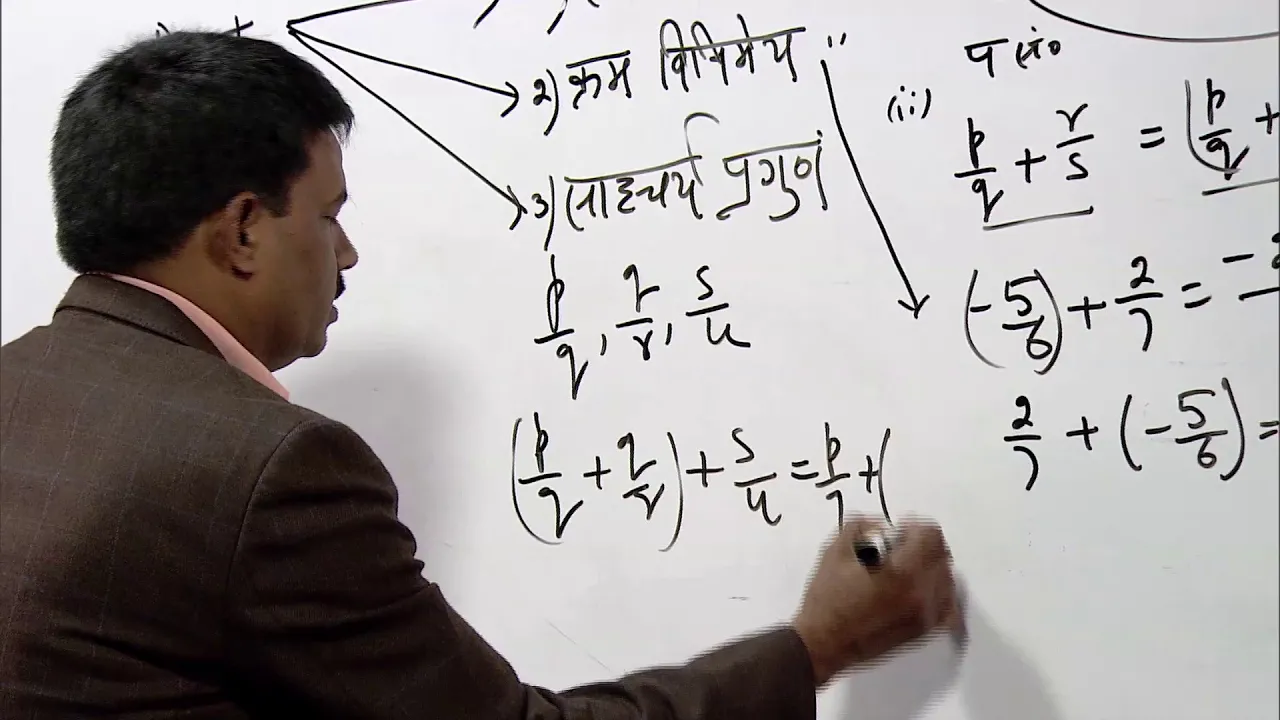 2) क्रम विनिमेय ''
3) साहचर्य प्रगुण
p/q , q/r , s/u
(p/q + q/r) + s/u = p/q + (
(ii)
p/q + r/s = (p/q +
(-5/6) + 2/7 =
2/7 + (-5/6) =